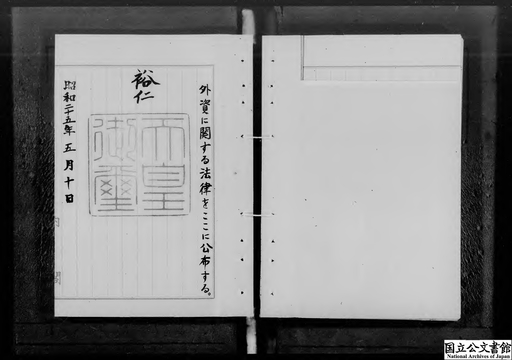 外資に関する法律をここに公布する。
裕仁
天皇
御璽
昭和二十五年五月十日
内閣
国立公文書館
National Archives of Japan